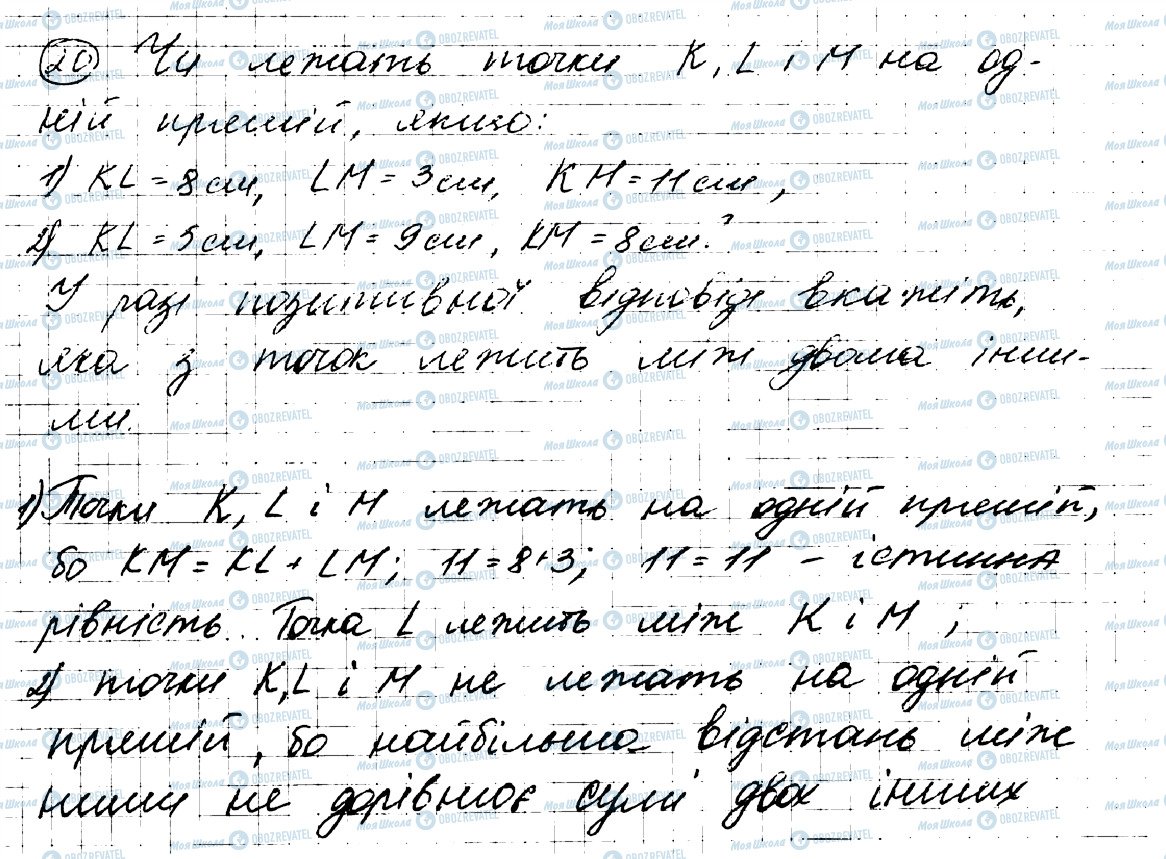 20 Чи лежать точки K, L і M на од-
ній прямій, якщо:
1) KL = 8 см, LM = 3 см, KM = 11 см,
2) KL = 5 см, LM = 9 см, KM = 8 см?
У разі позитивної відповіді вкажіть,
яка з точок лежить між двома інши-
ми.
1) Точки K, L і M лежать на одній прямій,
бо KM = KL + LM; 11 = 8+3; 11 = 11 – істинна
рівність. Точка L лежить між K і M;
2) точки K, L і M не лежать на одній
прямій, бо найбільша відстань між
ними не дорівнює сумі двох інших
МояШкола OBOZREVATEL